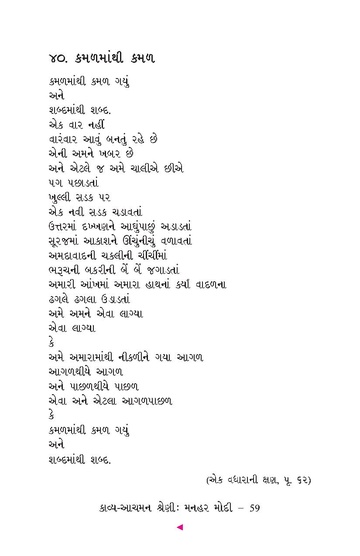 ૪૦. કમળમાંથી કમળ
કમળમાંથી કમળ ગયું
અને
શબ્દમાંથી શબ્દ.
એક વાર નહીં
વારંવાર આવું બનતું રહે છે
એની અમને ખબર છે
અને એટલે જ અમે ચાલીએ છીએ
પગ પછાડતાં
ખુલ્લી સડક પર
એક નવી સડક ચડાવતાં
ઉત્તરમાં દખ્ખણને આઘુંપાછું અડાડતાં
સૂરજમાં આકાશને ઊંચુંનીચું વળાવતાં
અમદાવાદની ચકલીની ચીંચીંમાં
ભરૂચની બકરીની બેં બેં જગાડતાં
અમારી આંખમાં અમારા હાથનાં કર્યાં વાદળના
ઢગલે ઢગલા ઉડાડતાં
અમે અમને એવા લાગ્યા
એવા લાગ્યા
કે
અમે અમારામાંથી નીકળીને ગયા આગળ
આગળથીયે આગળ
અને પાછળથીયે પાછળ
એવા અને એટલા આગળપાછળ
કે
કમળમાંથી કમળ ગયું
અને
શબ્દમાંથી શબ્દ.
(એક વધારાની ક્ષણ, પૃ. ૬૨)
કાવ્ય-આચમન શ્રેણીઃ મનહર મોદી – 59